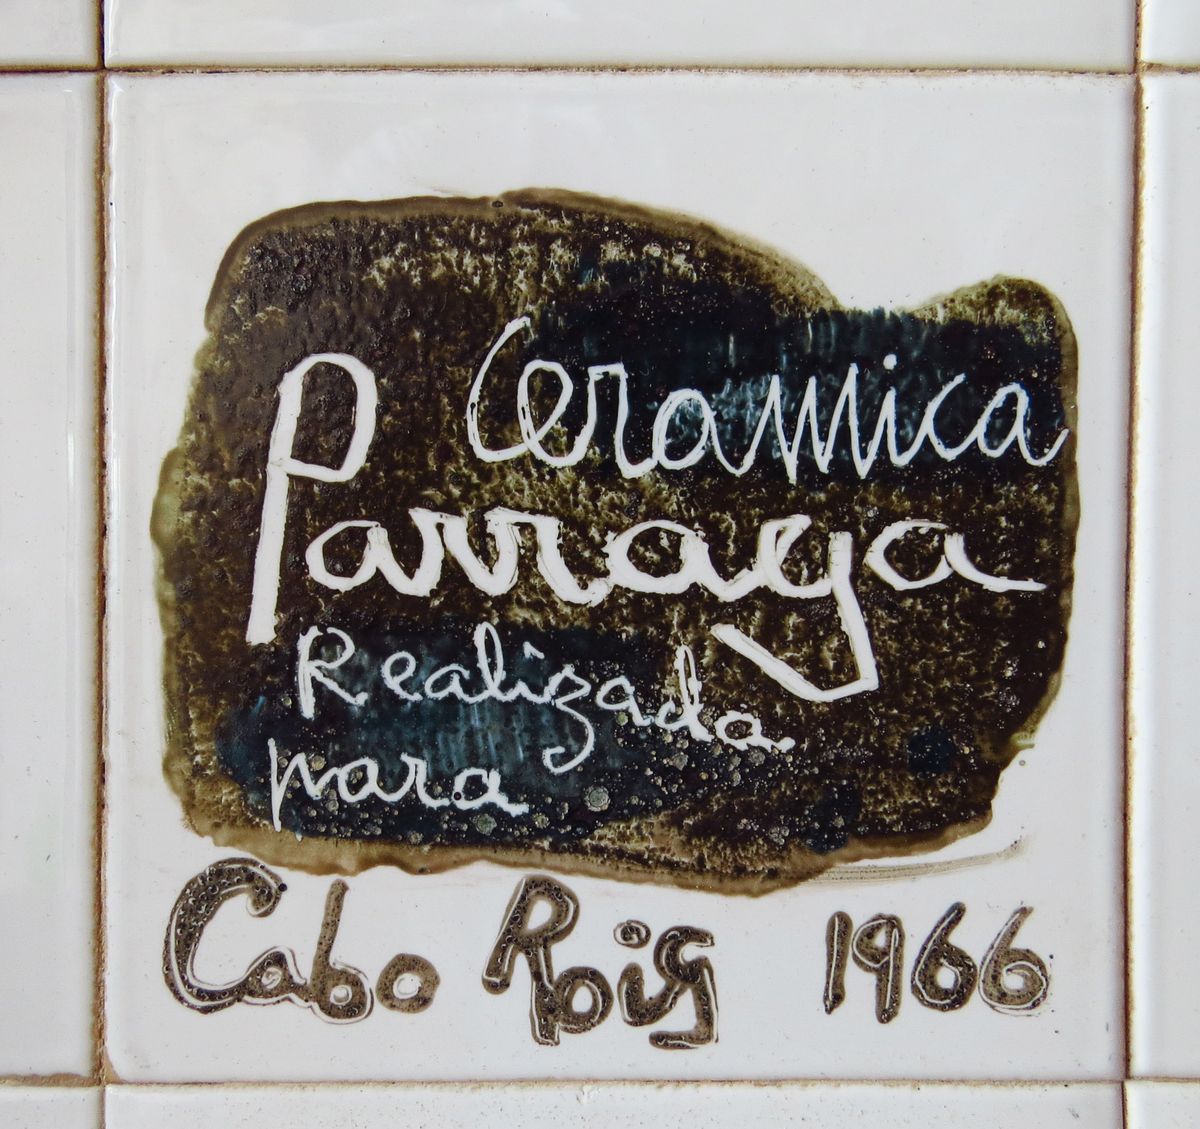 Ceramica
Parraga
Realizada
para
Cabo Roig 1966